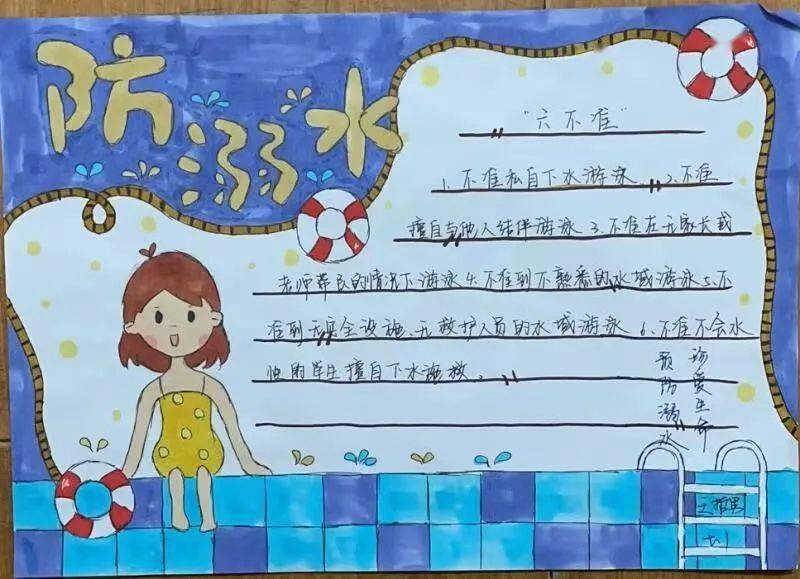 防溺水
"六不准"
1、不准私自下水游泳 2、不准
擅自与他人结伴游泳 3、不准在无家长或
老师带的情况下游泳 4、不准到不熟悉的水域游泳 5、不
准到无安全设施、无救护人员的水域游泳 6、不准不会水
性的学生擅自下水施救。
珍爱生命
预防溺水